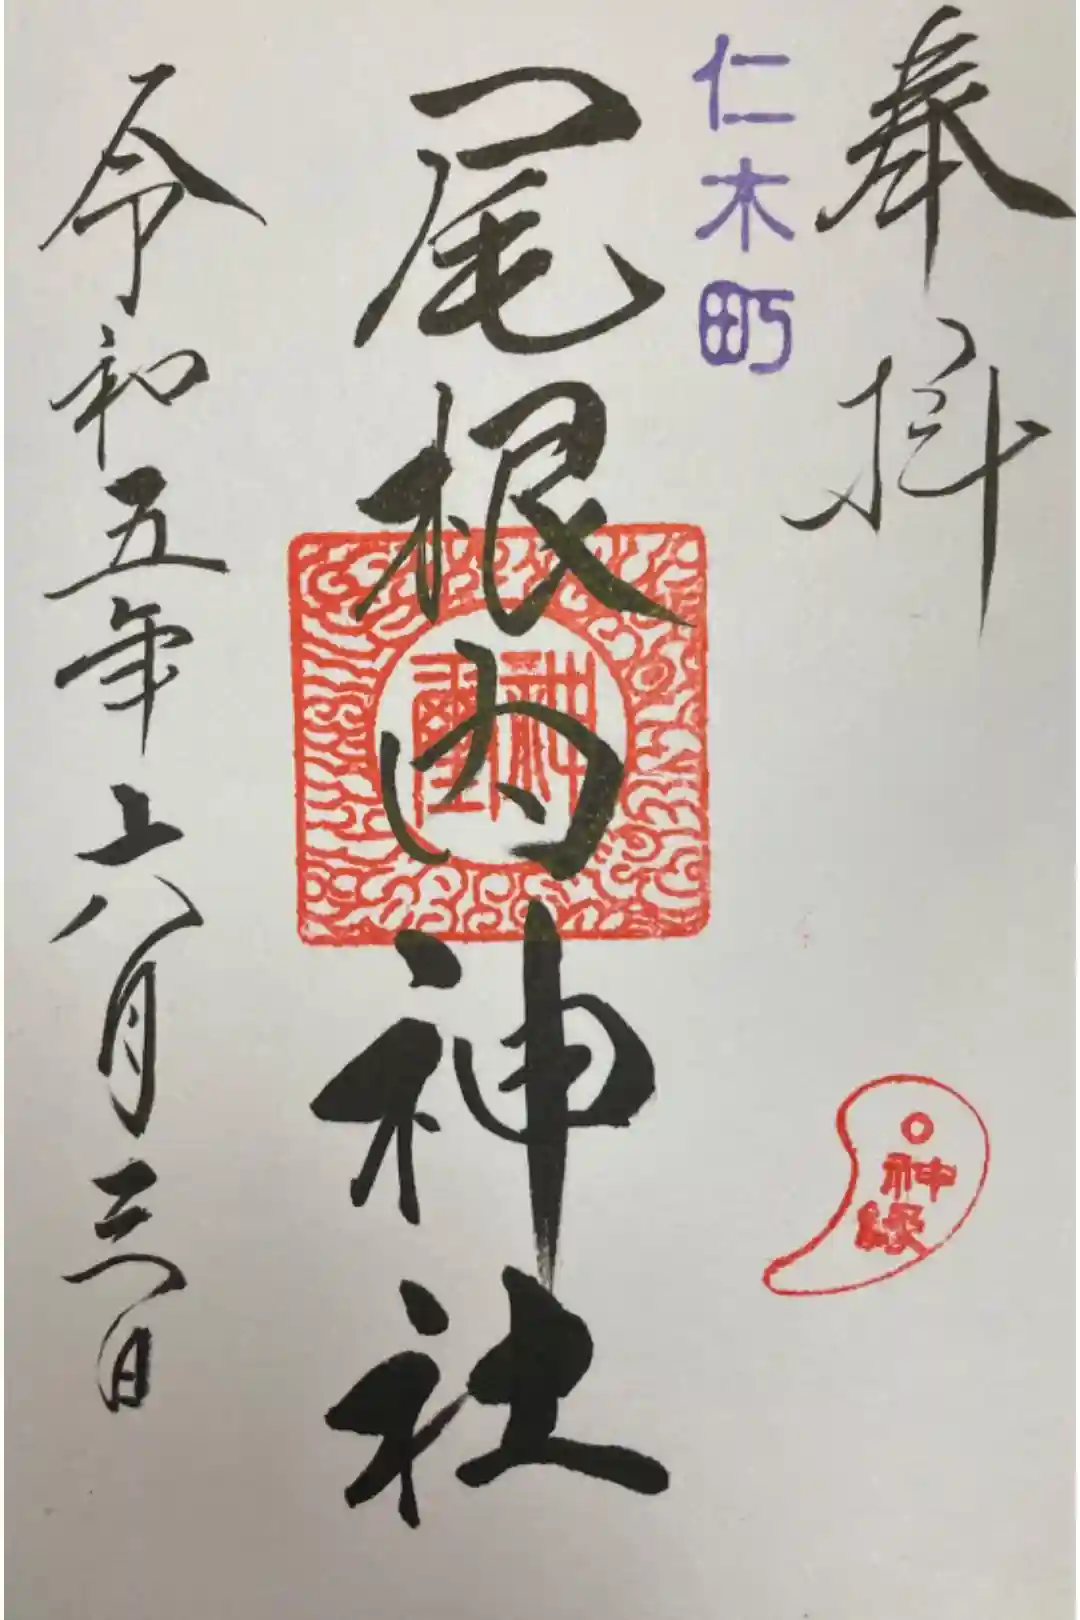 奉拝
仁木町
尾根内神社
神璽
神縁
令和五年六月三日